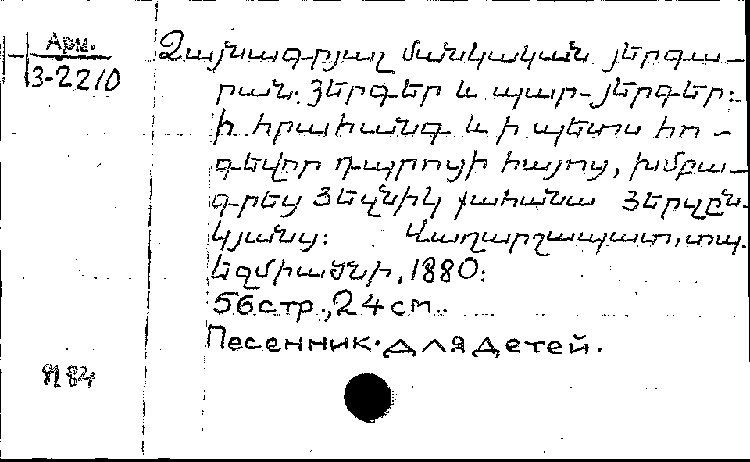 Арм.
3-2210
Ձայնագրյալ մանկական յերգա-
րան. Յերգեր և պար-յերգեր:
Ի հրահանգ և ի պետս հո-
գևոր դպրոցի հայոց, խմբա-
գրեց Յեզնիկ քահանա Յերզըն-
կյանց: Վաղարշապատ, տպ.
Եջմիածնի, 1880:
56стр., 24см.
Песенник для детей.
8184